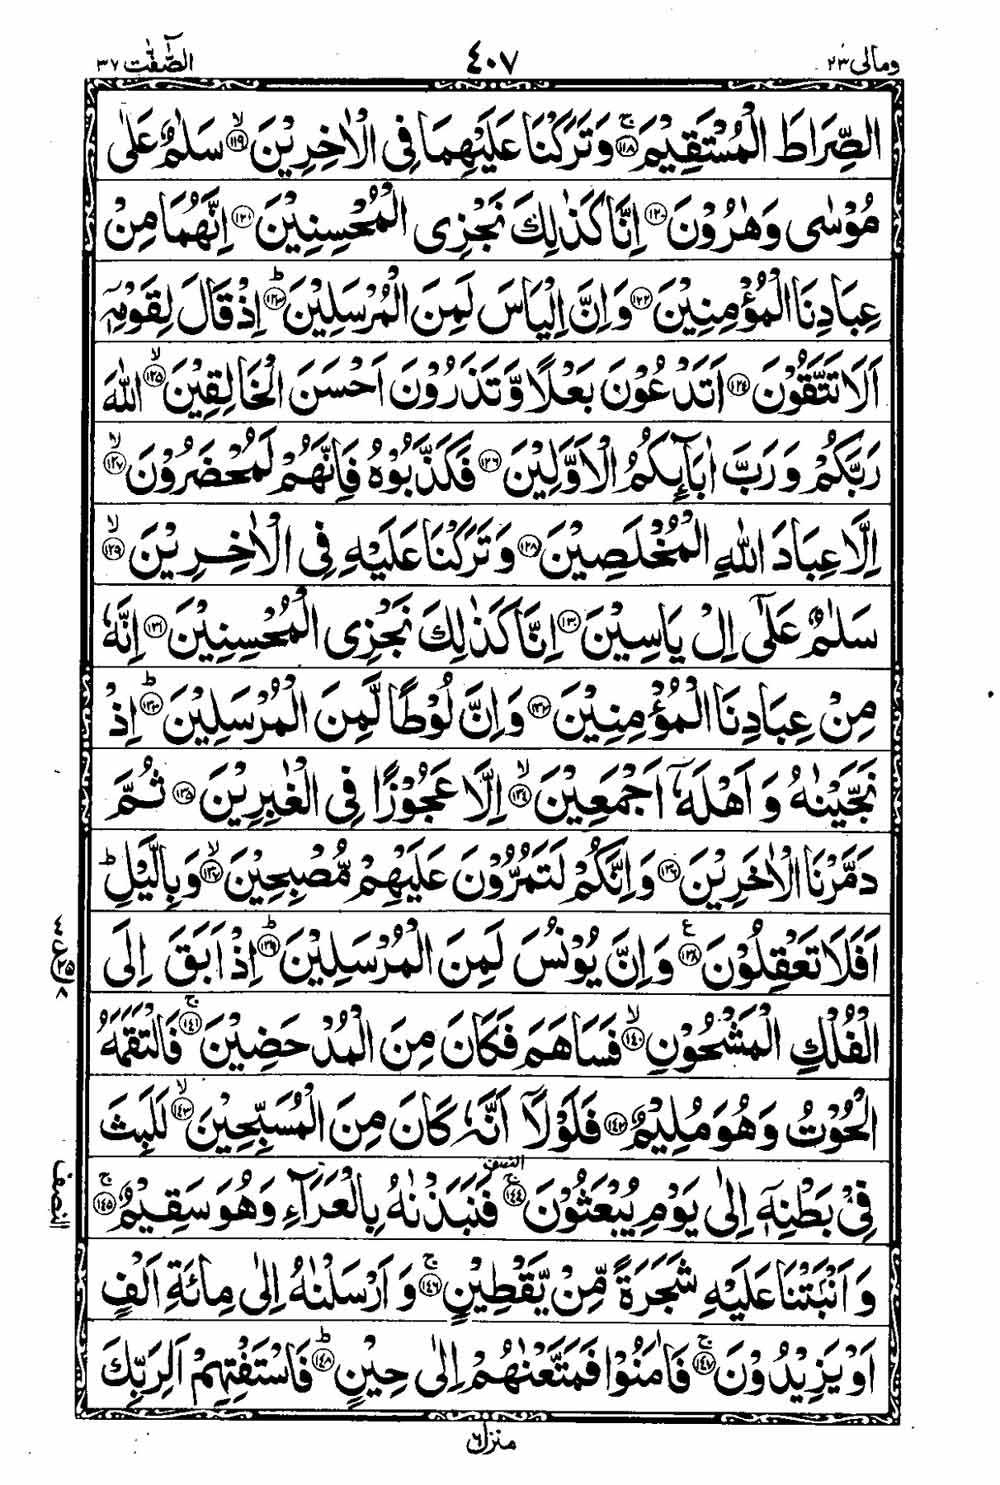 ومالی ٢٣ ٤٠٧ الصّٰٓفّٰت ٣٧
الصِّرَاطَ الْمُسْتَقِيْمَ ۚ‏﴿١١٨﴾ وَتَرَكْنَا عَلَيْهِمَا فِى الْاٰخِرِيْنَ ۙ‏﴿١١٩﴾ سَلٰمٌ عَلٰى
مُوْسٰى وَهٰرُوْنَ ﴿١٢٠﴾ اِنَّا كَذٰلِكَ نَجْزِى الْمُحْسِنِيْنَ ﴿١٢١﴾ اِنَّهُمَا مِنْ
عِبَادِنَا الْمُؤْمِنِيْنَ ﴿١٢٢﴾ وَاِنَّ اِلْيَاسَ لَمِنَ الْمُرْسَلِيْنَ ؕ‏﴿١٢٣﴾ اِذْ قَالَ لِقَوْمِهٖۤ
اَلَا تَتَّقُوْنَ ﴿١٢٤﴾ اَتَدْعُوْنَ بَعْلًا وَّتَذَرُوْنَ اَحْسَنَ الْخَالِقِيْنَ ۙ‏﴿١٢٥﴾ اللّٰهَ
رَبَّكُمْ وَرَبَّ اٰبَآئِكُمُ الْاَوَّلِيْنَ ﴿١٢٦﴾ فَكَذَّبُوْهُ فَاِنَّهُمْ لَمُحْضَرُوْنَ ۙ‏﴿١٢٧﴾
اِلَّا عِبَادَ اللّٰهِ الْمُخْلَصِيْنَ ﴿١٢٨﴾ وَتَرَكْنَا عَلَيْهِ فِى الْاٰخِرِيْنَ ۙ‏﴿١٢٩﴾
سَلٰمٌ عَلٰٓى اِلْ يَاسِيْنَ ﴿١٣٠﴾ اِنَّا كَذٰلِكَ نَجْزِى الْمُحْسِنِيْنَ ﴿١٣١﴾ اِنَّهٗ
مِنْ عِبَادِنَا الْمُؤْمِنِيْنَ ﴿١٣٢﴾ وَاِنَّ لُوْطًا لَّمِنَ الْمُرْسَلِيْنَ ؕ‏﴿١٣٣﴾ اِذْ
نَجَّيْنٰهُ وَاَهْلَهٗۤ اَجْمَعِيْنَ ۙ‏﴿١٣٤﴾ اِلَّا عَجُوْزًا فِى الْغٰبِرِيْنَ ﴿١٣٥﴾ ثُمَّ
دَمَّرْنَا الْاٰخَرِيْنَ ﴿١٣٦﴾ وَاِنَّكُمْ لَتَمُرُّوْنَ عَلَيْهِمْ مُّصْبِحِيْنَ ۙ‏﴿١٣٧﴾ وَبِالَّيْلِ ؕ
اَفَلَا تَعْقِلُوْنَ ﴿١٣٨﴾ ع وَاِنَّ يُوْنُسَ لَمِنَ الْمُرْسَلِيْنَ ؕ‏﴿١٣٩﴾ اِذْ اَبَقَ اِلَى
الْفُلْكِ الْمَشْحُوْنِ ۙ‏﴿١٤٠﴾ فَسَاهَمَ فَكَانَ مِنَ الْمُدْحَضِيْنَ ۚ‏﴿١٤١﴾ فَالْتَقَمَهُ
الْحُوْتُ وَهُوَ مُلِيْمٌ ﴿١٤٢﴾ فَلَوْلَاۤ اَنَّهٗ كَانَ مِنَ الْمُسَبِّحِيْنَ ۙ‏﴿١٤٣﴾ لَلَبِثَ
فِىْ بَطْنِهٖۤ اِلٰى يَوْمِ يُبْعَثُوْنَ ۚ‏﴿١٤٤﴾ النصف فَنَبَذْنٰهُ بِالْعَرَآءِ وَهُوَ سَقِيْمٌ ۚ‏﴿١٤٥﴾
النصف
وَاَنْۢبَتْنَا عَلَيْهِ شَجَرَةً مِّنْ يَّقْطِيْنٍ ۚ‏﴿١٤٦﴾ وَاَرْسَلْنٰهُ اِلٰى مِائَةِ اَلْفٍ
اَوْ يَزِيْدُوْنَ ۚ‏﴿١٤٧﴾ فَاٰمَنُوْا فَمَتَّعْنٰهُمْ اِلٰى حِيْنٍ ؕ‏﴿١٤٨﴾ فَاسْتَفْتِهِمْ اَلِرَبِّكَ
منزل ٦